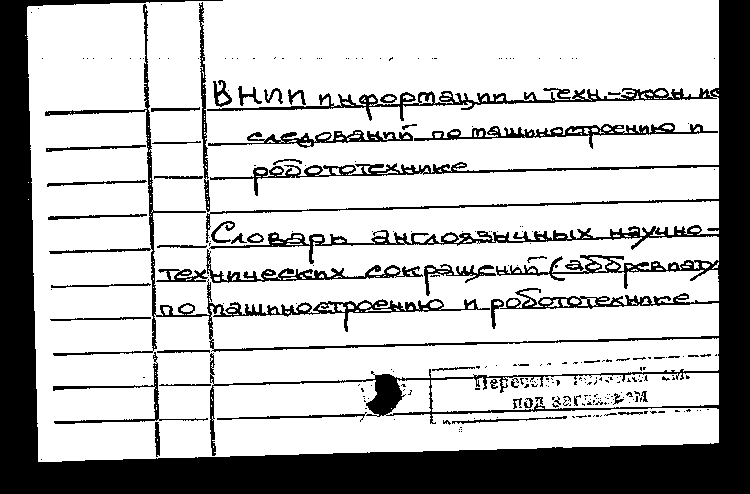 ВНИИ информации и техн.-экон. ис
следований по машиностроению и
робототехнике
Словарь англоязычных научно-
технических сокращений (аббревиату
по машиностроению и робототехнике.
Перечень изданий см.
под заглавием